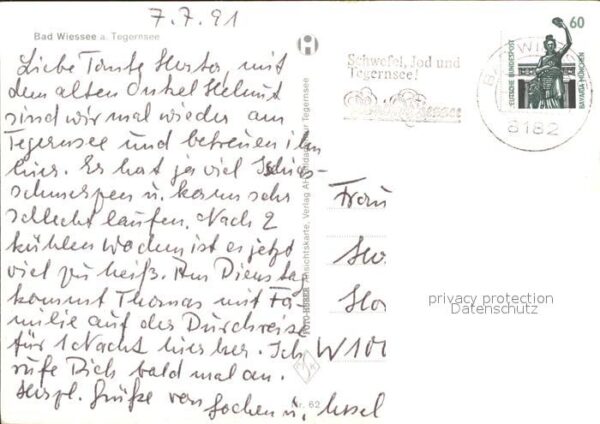 7.7.91
Bad Wiessee a. Tegernsee
Liebe Tante Herta, mit
dem alten Onkel Helmut
sind wir mal wieder am
Tegernsee und betreuen ihn
hier. Er hat ja viel
schmerzen u. kann sehr
schlecht laufen. Nach 2
kühlen Wochen ist es jetzt
viel zu heiß. Am Dienstag
kommt Thomas mit Fa-
milie auf der Durchreise
für 1 Nacht hierher. Ich
rufe Dich bald mal an.
Herzl. Grüße von Jochen u.
Nr. 62
Ansichtskarte, Verlag
Tegernsee
Schwefel, Jod und
Tegernsee!
Bad Wiessee
8182
60
DEUTSCHE BUNDESPOST
BAVARIA MÜNCHEN
Frau
W 100
privacy protection
Datenschutz